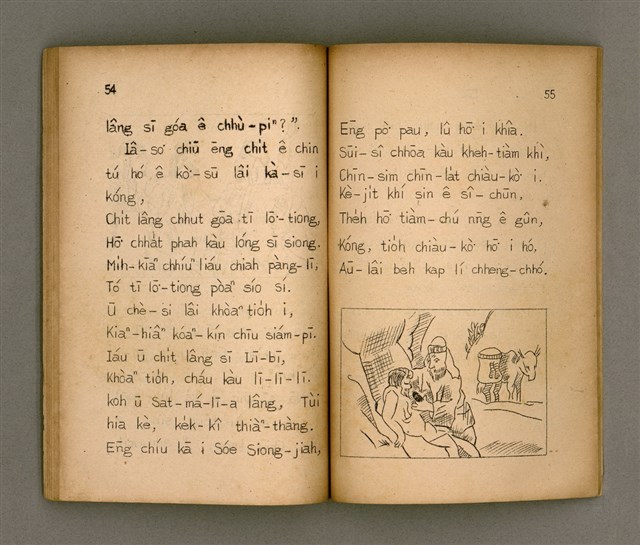 54
lâng sī góa ê chhù-piⁿ?”.
Iâ-so͘ chiū ēng chi̍t ê chin
tú hó ê kò͘-sū lâi kà-sī i
kóng,
Chi̍t lâng chhut gōa tī lō͘-tiong,
Hō͘ chha̍t phah kàu lóng sī siong.
Mi̍h-kiāⁿ chhíuⁿ liáu chiah pàng-lī,
Tó tī lō͘-tiong pòaⁿ sío sí.
Ū chè-si lâi khòaⁿ tio̍h i,
Kiaⁿ-hiâⁿ kóaⁿ-kín chīu siám-pī.
Iáu ū chi̍t lâng sī Lī-bī,
Khòaⁿ tio̍h, cháu kàu lī-lī-lī.
koh ū Sat-má-lī-a lâng, Tùi
hia kè, ke̍k-kî thiàⁿ-thàng.
Eng chíu kā i Sóe Siong-jiah,
55
Eng pò͘ pau, lû hō͘ i khîa.
Sūi-sî chhōa kàu kheh-tiàm khì,
Chīn-sim chīn-la̍t chiàu-kò͘ i.
Kè-ji̍t khí sin ê sî-chūn,
The̍h hō͘ tiàm-chú nn̄g ê gûn,
Kóng, tio̍h chiàu-kò͘ hō͘ i hó,
Aū-lâi beh kap lí chheng-chhó.